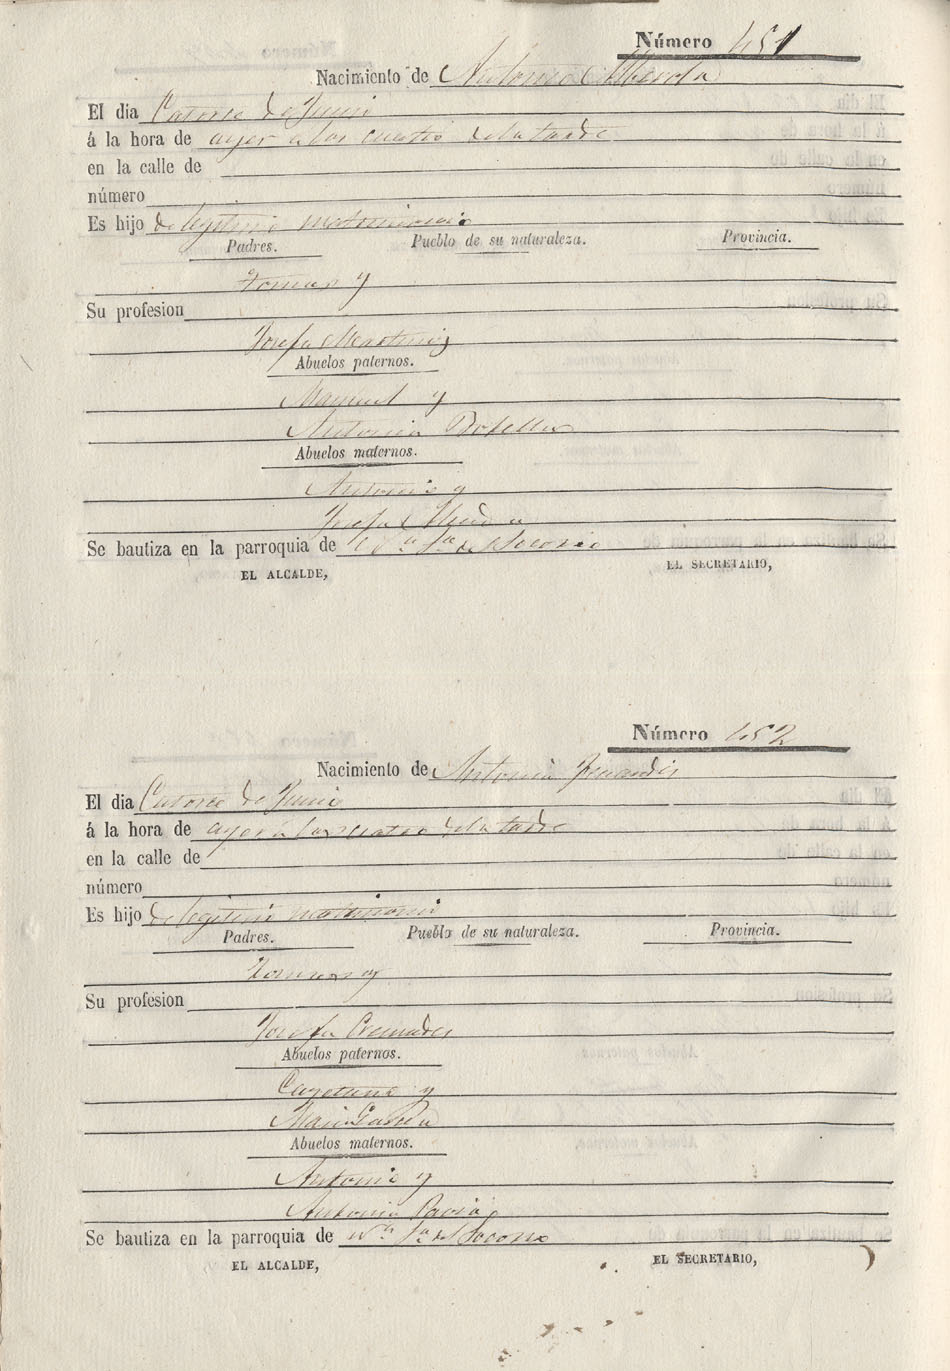 Número 451
Nacimiento de Antonio Alberola
El dia Catorce de Junio
á la hora de ayer a las cuatro de la tarde
en la calle de
número
Es hijo de legitimo matrimonio
Padres. Pueblo de su naturaleza. Provincia.
Tomas y
Su profesion
Josefa Martinez
Abuelos paternos.
Manuel y
Antonia Botella
Abuelos maternos.
Antonio y
Josefa
Se bautiza en la parroquia de Nª Sª del Socorro
EL ALCALDE, EL SECRETARIO,
Número 452
Nacimiento de Antonia Fernandez
El dia Catorce de Junio
á la hora de ayer a las cuatro de la tarde
en la calle de
número
Es hijo de legitimo matrimonio
Padres. Pueblo de su naturaleza. Provincia.
Tomas y
Su profesion
Josefa Cremades
Abuelos paternos.
Cayetano y
Maria Garcia
Abuelos maternos.
Antonio y
Antonia Pavia
Se bautiza en la parroquia de Nª Sª del Socorro
EL ALCALDE, EL SECRETARIO,